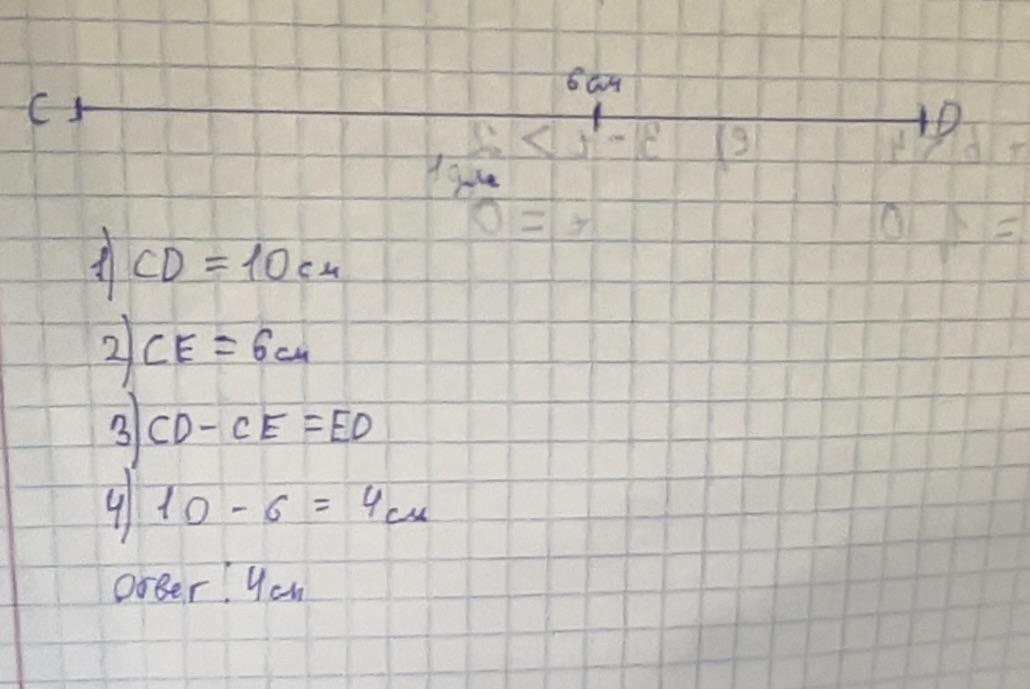 6см
C D
1 дм
1) CD = 10 см
2) CE = 6 см
3) CD - CE = ED
4) 10 - 6 = 4 см
Ответ: 4 см